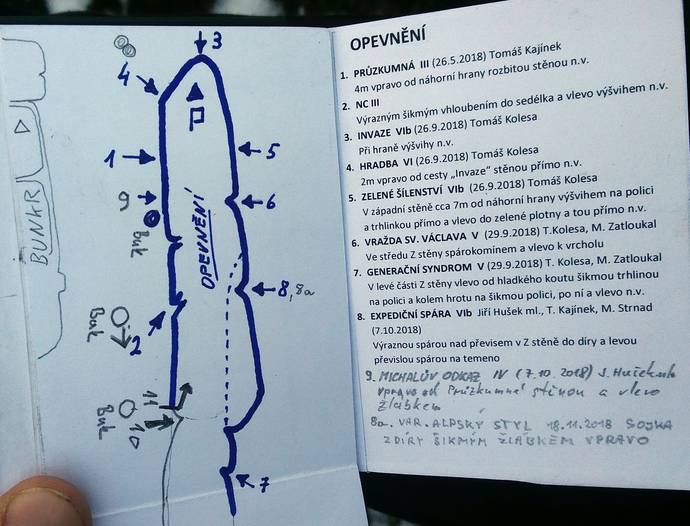 3
4
1
5
9
6
Buk
BUNKR
OPEVNĚNÍ
8, 8a
Buk
2
11
Buk
10
7
OPEVNĚNÍ
1. PRŮZKUMNÁ III (26.5.2018) Tomáš Kajínek
4m vpravo od náhorní hrany rozbitou stěnou n.v.
2. NC III
Výrazným šikmým vhloubením do sedélka a vlevo výšvihem n.v.
3. INVAZE VIb (26.9.2018) Tomáš Kolesa
Při hraně výšvihy n.v.
4. HRADBA VI (26.9.2018) Tomáš Kolesa
2m vpravo od cesty „Invaze“ stěnou přímo n.v.
5. ZELENÉ ŠÍLENSTVÍ VIb (26.9.2018) Tomáš Kolesa
V západní stěně cca 7m od náhorní hrany výšvihem na polici
a trhlinkou přímo a vlevo do zelené plotny a tou přímo n.v.
6. VRAŽDA SV. VÁCLAVA V (29.9.2018) T.Kolesa, M. Zatloukal
Ve středu Z stěny spárokomínem a vlevo k vrcholu
7. GENERAČNÍ SYNDROM V (29.9.2018) T. Kolesa, M. Zatloukal
V levé části Z stěny vlevo od hladkého koutu šikmou trhlinou
na polici a kolem hrotu na šikmou polici, po ní a vlevo n.v.
8. EXPEDIČNÍ SPÁRA VIb Jiří Hušek ml., T. Kajínek, M. Strnad
(7.10.2018)
Výraznou spárou nad převisem v Z stěně do díry a levou
převislou spárou na temeno
9. MICHALŮV ODKAZ IV (7.10.2018) J. Hušek ml.
vpravo od Průzkumné stěnou a vlevo
žlábkem
8a. VAR. ALPSKÝ STYL 18.11.2018 SOJKA
Z DÍRY ŠIKMÝM ŽLÁBKEM VPRAVO